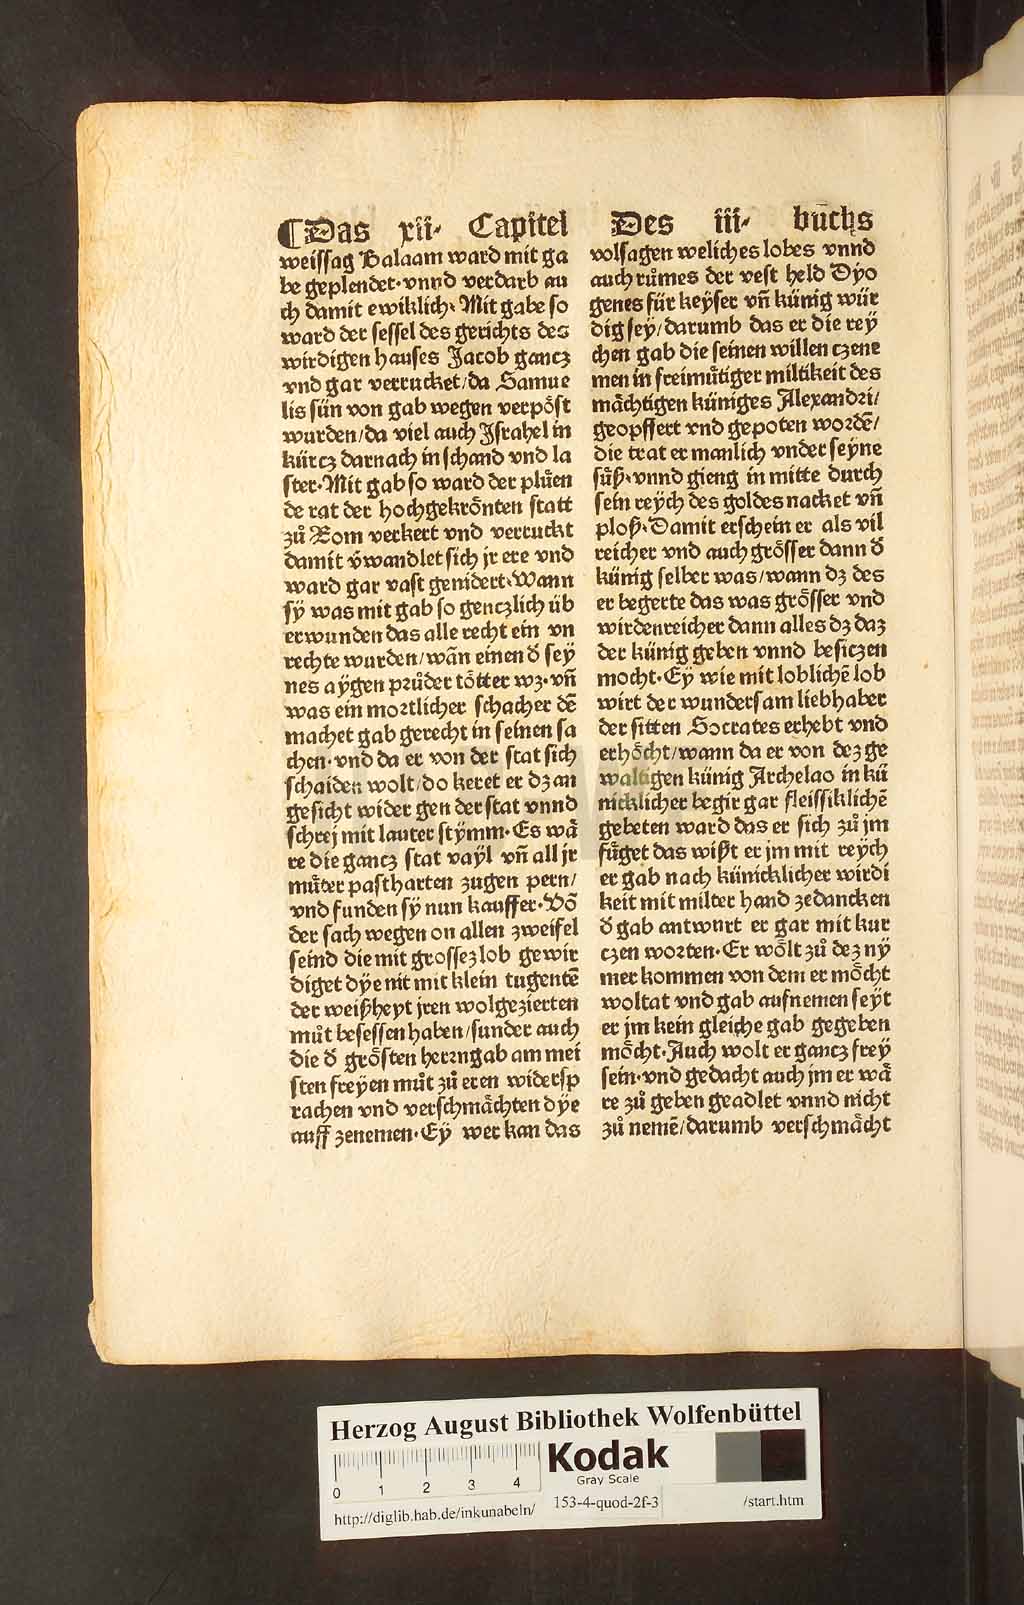 ¶Das xii· Capitel
weissag Balaam ward mit ga
be geplendet·vnnd verdarb au
ch damit ewiklich·Mit gabe so
ward der sessel des gerichts des
wirdigen hauses Jacob gancz
vnd gar verrucket/da Samue
lis sün von gab wegen verpöst
wurden/da viel auch Jsrahel in
kürcz darnach in schand vnd la
ster·Mit gab so ward der plůen
de rat der hochgekrönten statt
zů Rom verkert vnd verruckt
damit v̈wandlet sich jr ere vnd
ward gar vast genidert·Wann
sÿ was mit gab so genczlich üb
erwunden das alle recht ein vn
rechte wurden/wān einen d̄ sey
nes aÿgen průder tötter wz·vn̄
was ein mortlicher schacher dē
machet gab gerecht in seinen sa
chen·vnd da er von der stat sich
schaiden wolt/do keret er dz an
gesicht wider gen der stat vnnd
schrej mit lauter stÿmm·Es wä
re die gancz stat vaÿl vn̄ all jr
můter pastharten zugen pern/
vnd funden sÿ nun kauffer·Vō
der sach wegen on allen zweifel
seind die mit grossez lob gewir
diget dÿe nit mit klein tugentē
der weißheyt jren wolgezierten
můt besessen haben/sunder auch
die d̄ grösten herrngab am mei
sten freÿen můt zů eren widersp
rachen vnd verschmächten dÿe
auff zenemen·Eÿ wer kan das
Des iii· bůchs
volsagen weliches lobes vnnd
auch růmes der vest held Dÿo
genes für keÿser vn̄ künig wür
dig seÿ/darumb das er die reÿ
chen gab die seinen willen czene
men in freimütiger miltikeit des
mächtigen küniges Alexandri/
geopffert vnd gepoten wordē/
die trat er manlich vnder seÿne
füß·vnnd gieng in mitte durch
sein reÿch des goldes nacket vn̄
ploß·Damit erschein er als vil
reicher vnd auch grösser dann d̄
künig selber was/wann dz des
er begerte das was grösser vnd
wirdenreicher dann alles dz daz
der künig geben vnnd besiczen
mocht·Eÿ wie mit loblichē lob
wirt der wundersam liebhaber
der sitten Socrates erhebt vnd
erhöcht/wann da er von dez ge
waltigen künig Archelao in kü
nicklicher begir gar fleissiklichē
gebeten ward das er sich zů jm
füget das wißt er jm mit reÿch
er gab nach künicklicher wirdi
keit mit milter hand zedancken
d̄ gab antwurt er gar mit kur
czen worten·Er wölt zů dez nÿ
mer kommen von dem er möcht
woltat vnd gab aufnemen seÿt
er jm kein gleiche gab gegeben
möcht·Auch wolt er gancz freÿ
sein·vnd gedacht auch jm er wä
re zů geben geadlet vnnd nicht
zů nemē/darumb verschmächt
Herzog August Bibliothek Wolfenbüttel
Kodak
Gray Scale
0 1 2 3 4
http://diglib.hab.de/inkunabeln/
153-4-quod-2f-3
/start.htm